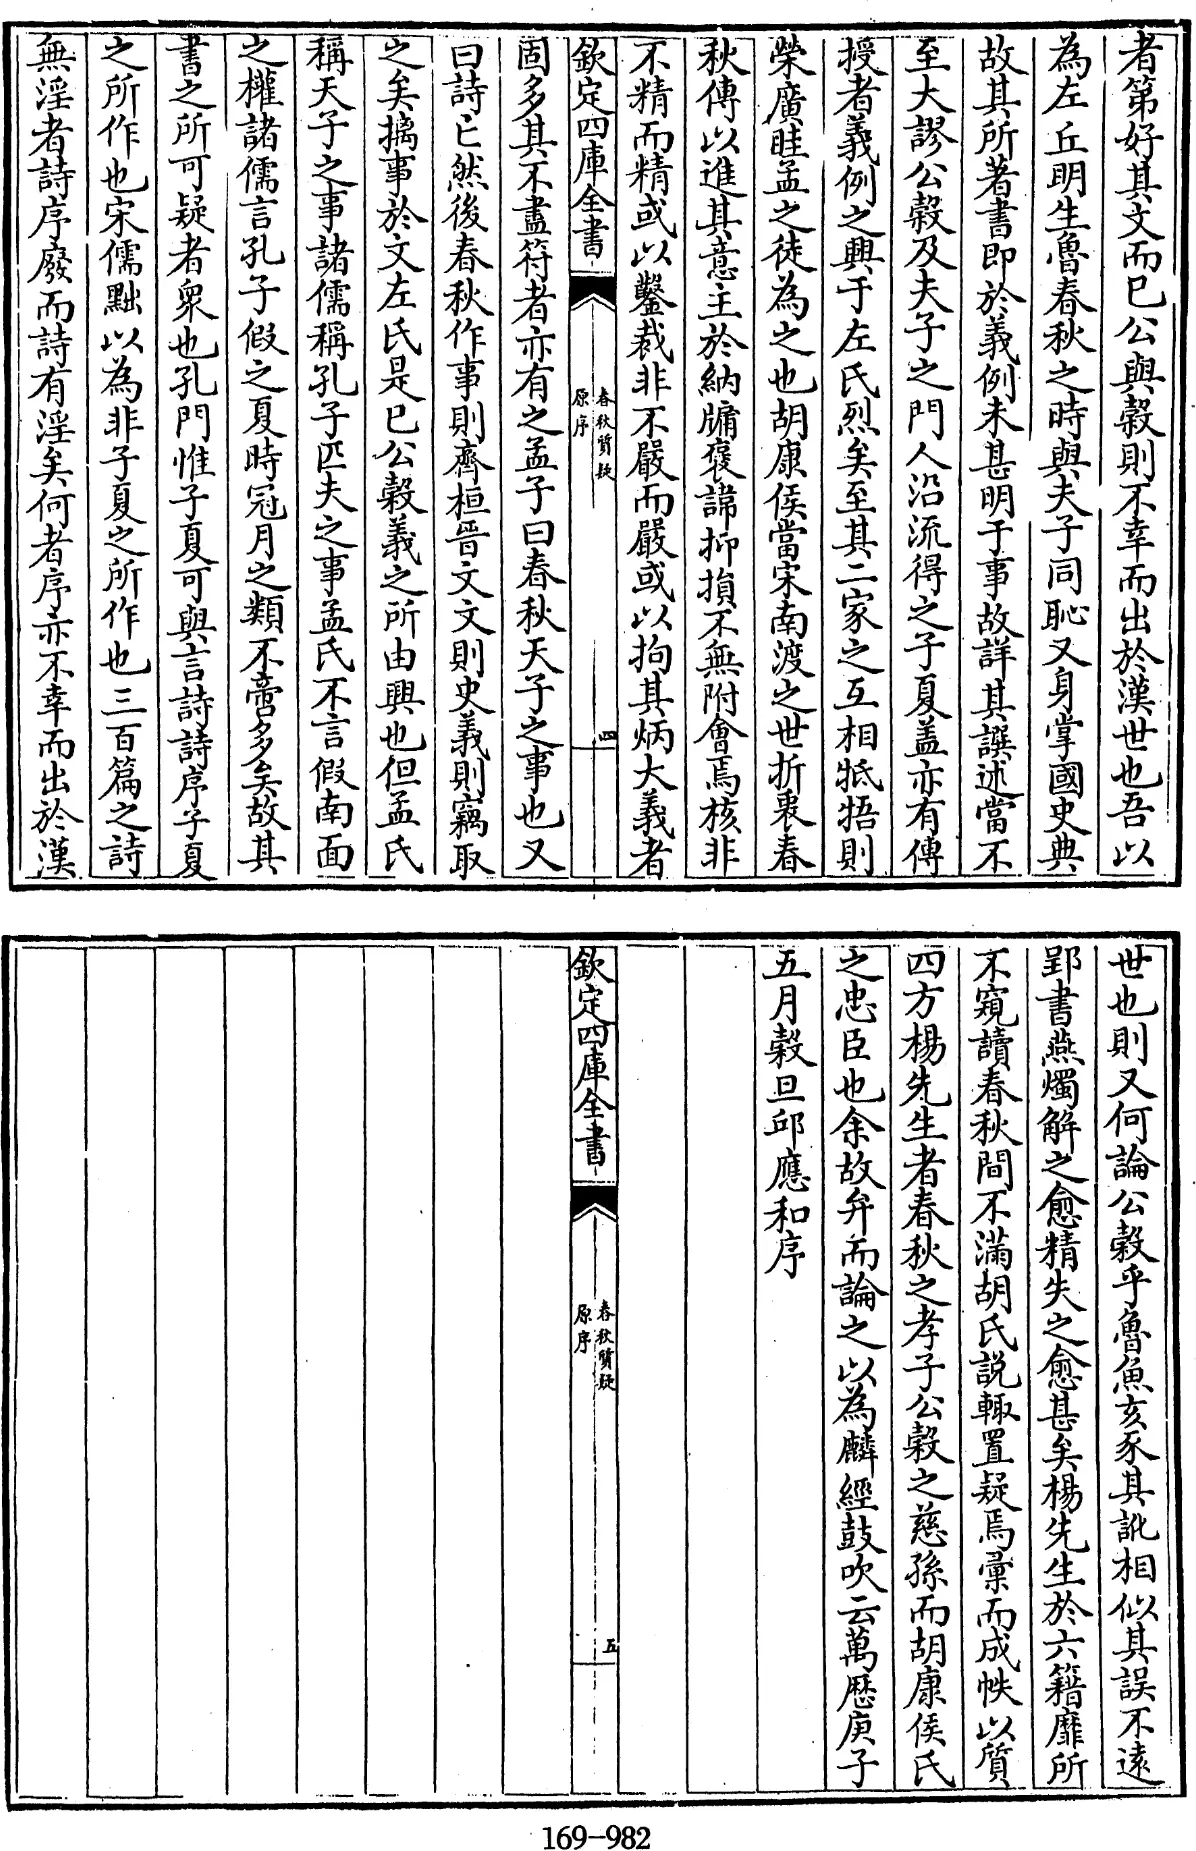 者第好其文而已公與穀則不幸而出於漢世也吾以
為左丘明生魯春秋之時與夫子同恥又身掌國史典
故其所著書即於義例未甚明于事故詳其譔述當不
至大謬公穀及夫子之門人沿流得之子夏盖亦有傳
授者義例之興于左氏烈矣至其二家之互相牴牾則
榮廣眭孟之徒為之也胡康侯當宋南渡之世折衷春
秋傳以進其意主於納牖褒諱抑損不無附會焉核非
不精而精或以鑿裁非不嚴而嚴或以拘其炳大義者
欽定四庫全書
春秋質疑
原序
四
固多其不盡符者亦有之孟子曰春秋天子之事也又
曰詩亡然後春秋作事則齊桓晉文文則史義則竊取
之矣摛事於文左氏是已公穀義之所由興也但孟氏
稱天子之事諸儒稱孔子匹夫之事孟氏不言假南面
之權諸儒言孔子假之夏時冠月之類不啻多矣故其
書之所可疑者衆也孔門惟子夏可與言詩詩序子夏
之所作也宋儒黜以為非子夏之所作也三百篇之詩
無淫者詩序廢而詩有淫矣何者序亦不幸而出於漢
世也則又何論公穀乎魯魚亥豕其訛相似其誤不遠
郢書燕燭解之愈精失之愈甚矣楊先生於六籍靡所
不窺讀春秋間不滿胡氏説輙置疑焉彚而成帙以質
四方楊先生者春秋之孝子公穀之慈孫而胡康侯氏
之忠臣也余故弁而論之以為麟經鼓吹云萬厯庚子
五月穀旦邱應和序
欽定四庫全書
春秋質疑
原序
五
169-982